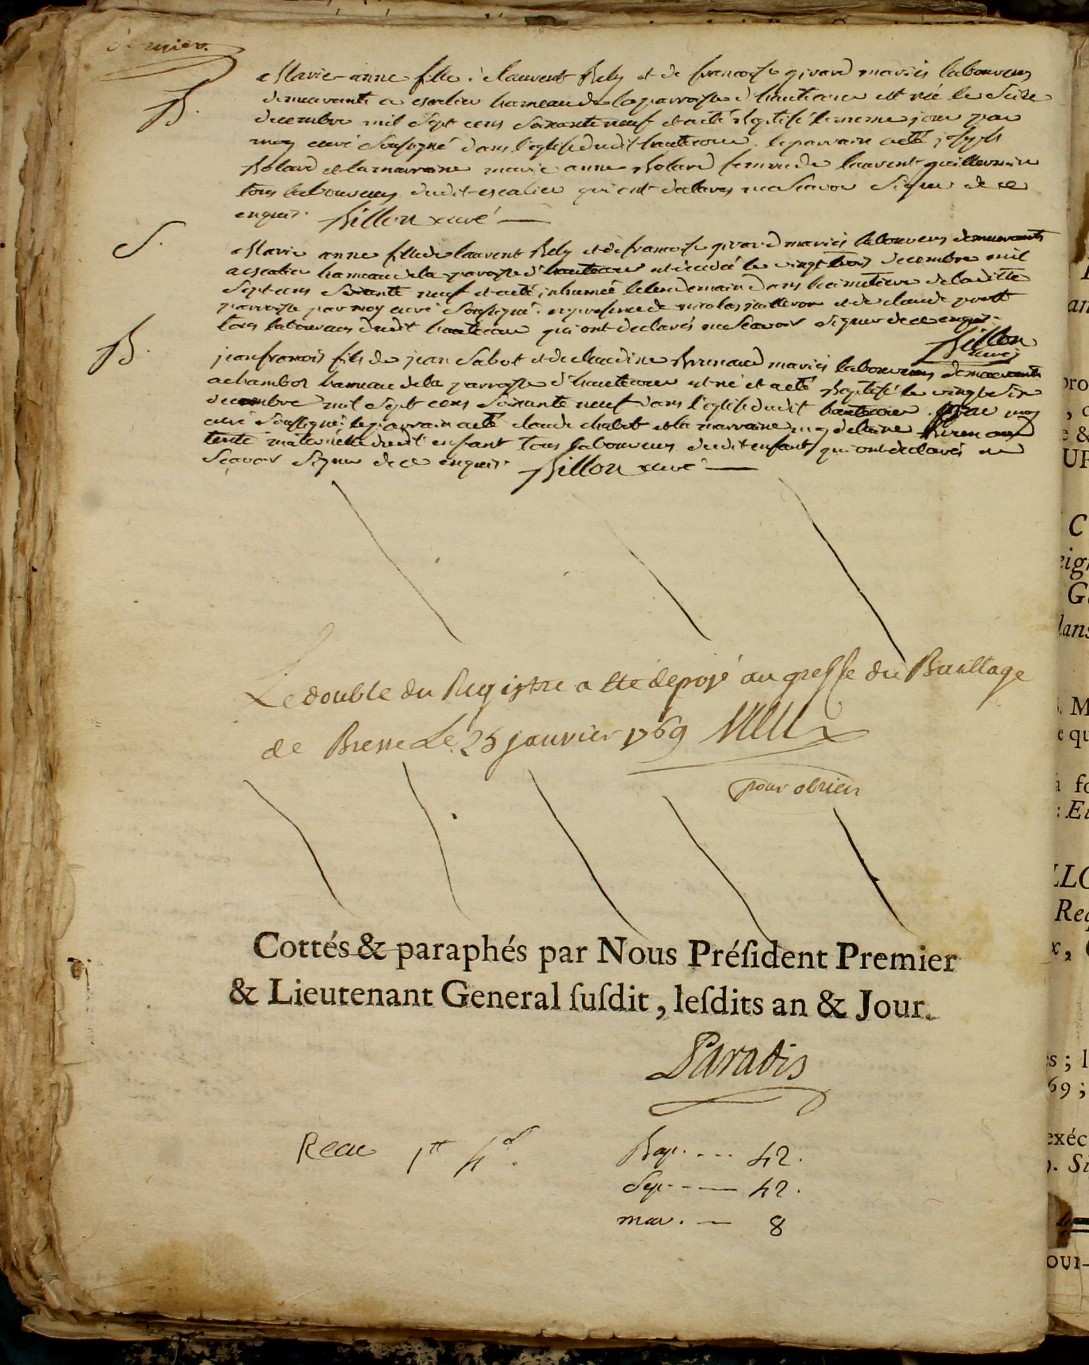 Dernier.
B.
Marie-anne fille de laurent Rely et de francoise girard mariés laboureurs
demeurants a escalier hameau de la parroisse d'hautecour est née le seize
decembre mil sept cens soixante neuf et a eté Baptisé le meme jour par
moy curé soussigné dans l'eglise dudit hautecour. le parrain a eté joseph
Bolard et la marraine marie anne Bolard femme de laurent guillermin
tous laboureurs dudit escalier qui ont declarés ne sçavoir signer de ce
enquis. Billon curé
S.
Marie anne fille de laurent Rely et de francoise girard mariés laboureurs demeurants
a escalier hameau de la parroisse d'hautecour est decedé le vingt trois decembre mil
sept cens soixante neuf et a eté inhumée le lendemain dans le cimetiere de la ditte
parroisse par moy curé soussigné. en presence de nicolas et de claude
tous laboureurs dudit hautecour qui ont declarés ne sçavoir signer de ce enquis.
Billon
curé
B.
jean francois fils de jean Sabot et de claudine Brenaud mariés laboureurs demeurants
a chambor hameau de la parroisse d'hautecour est né et a eté Baptisé le vingt six
decembre mil sept cens soixante neuf dans l'eglise dudit hautecour par moy
curé soussigné. le parrain a eté claude chabot et la marraine magdelaine Brenaud
tente maternele dudit enfant tous laboureurs dudit enfant qui ont declarés ne
sçavoir signer de ce enquis. Billon curé
Le double du Registre a eté deposé au greffe du Bailliage
de Bresse Le 25 janvier 1769
Cottés & paraphés par Nous Préſident Premier
& Lieutenant General ſuſdit, leſdits an & Jour.
Paradis
Bap. ---- 42.
Sep. ---- 42.
mar. -- 8